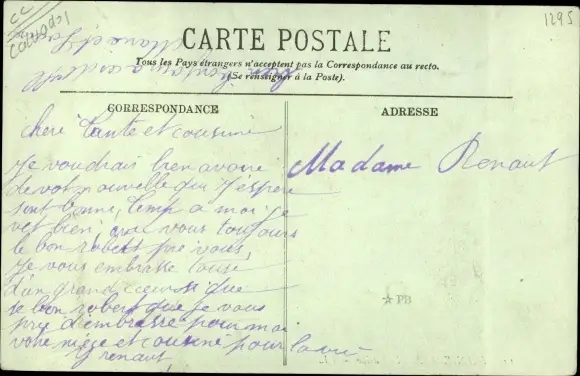 1295
Calvados
CARTE POSTALE
Tous les Pays étrangers n'acceptent pas la Correspondance au recto.
(Se renseigner à la Poste).
CORRESPONDANCE
ADRESSE
chere Tante et cousine
Je voudrais bien avoire
de vot nouvelle qui J'espere
sont bonne, temp a moi Je
vet bien, que vous toujours
le bon robert pre vous,
Je vous embrasse touse
d'un grand cœur si que
le bon robert que Je vous
prie d'embrasse pour moi
votre niese et cousine pour la vie
Y renaut
Madame Renaut
PB